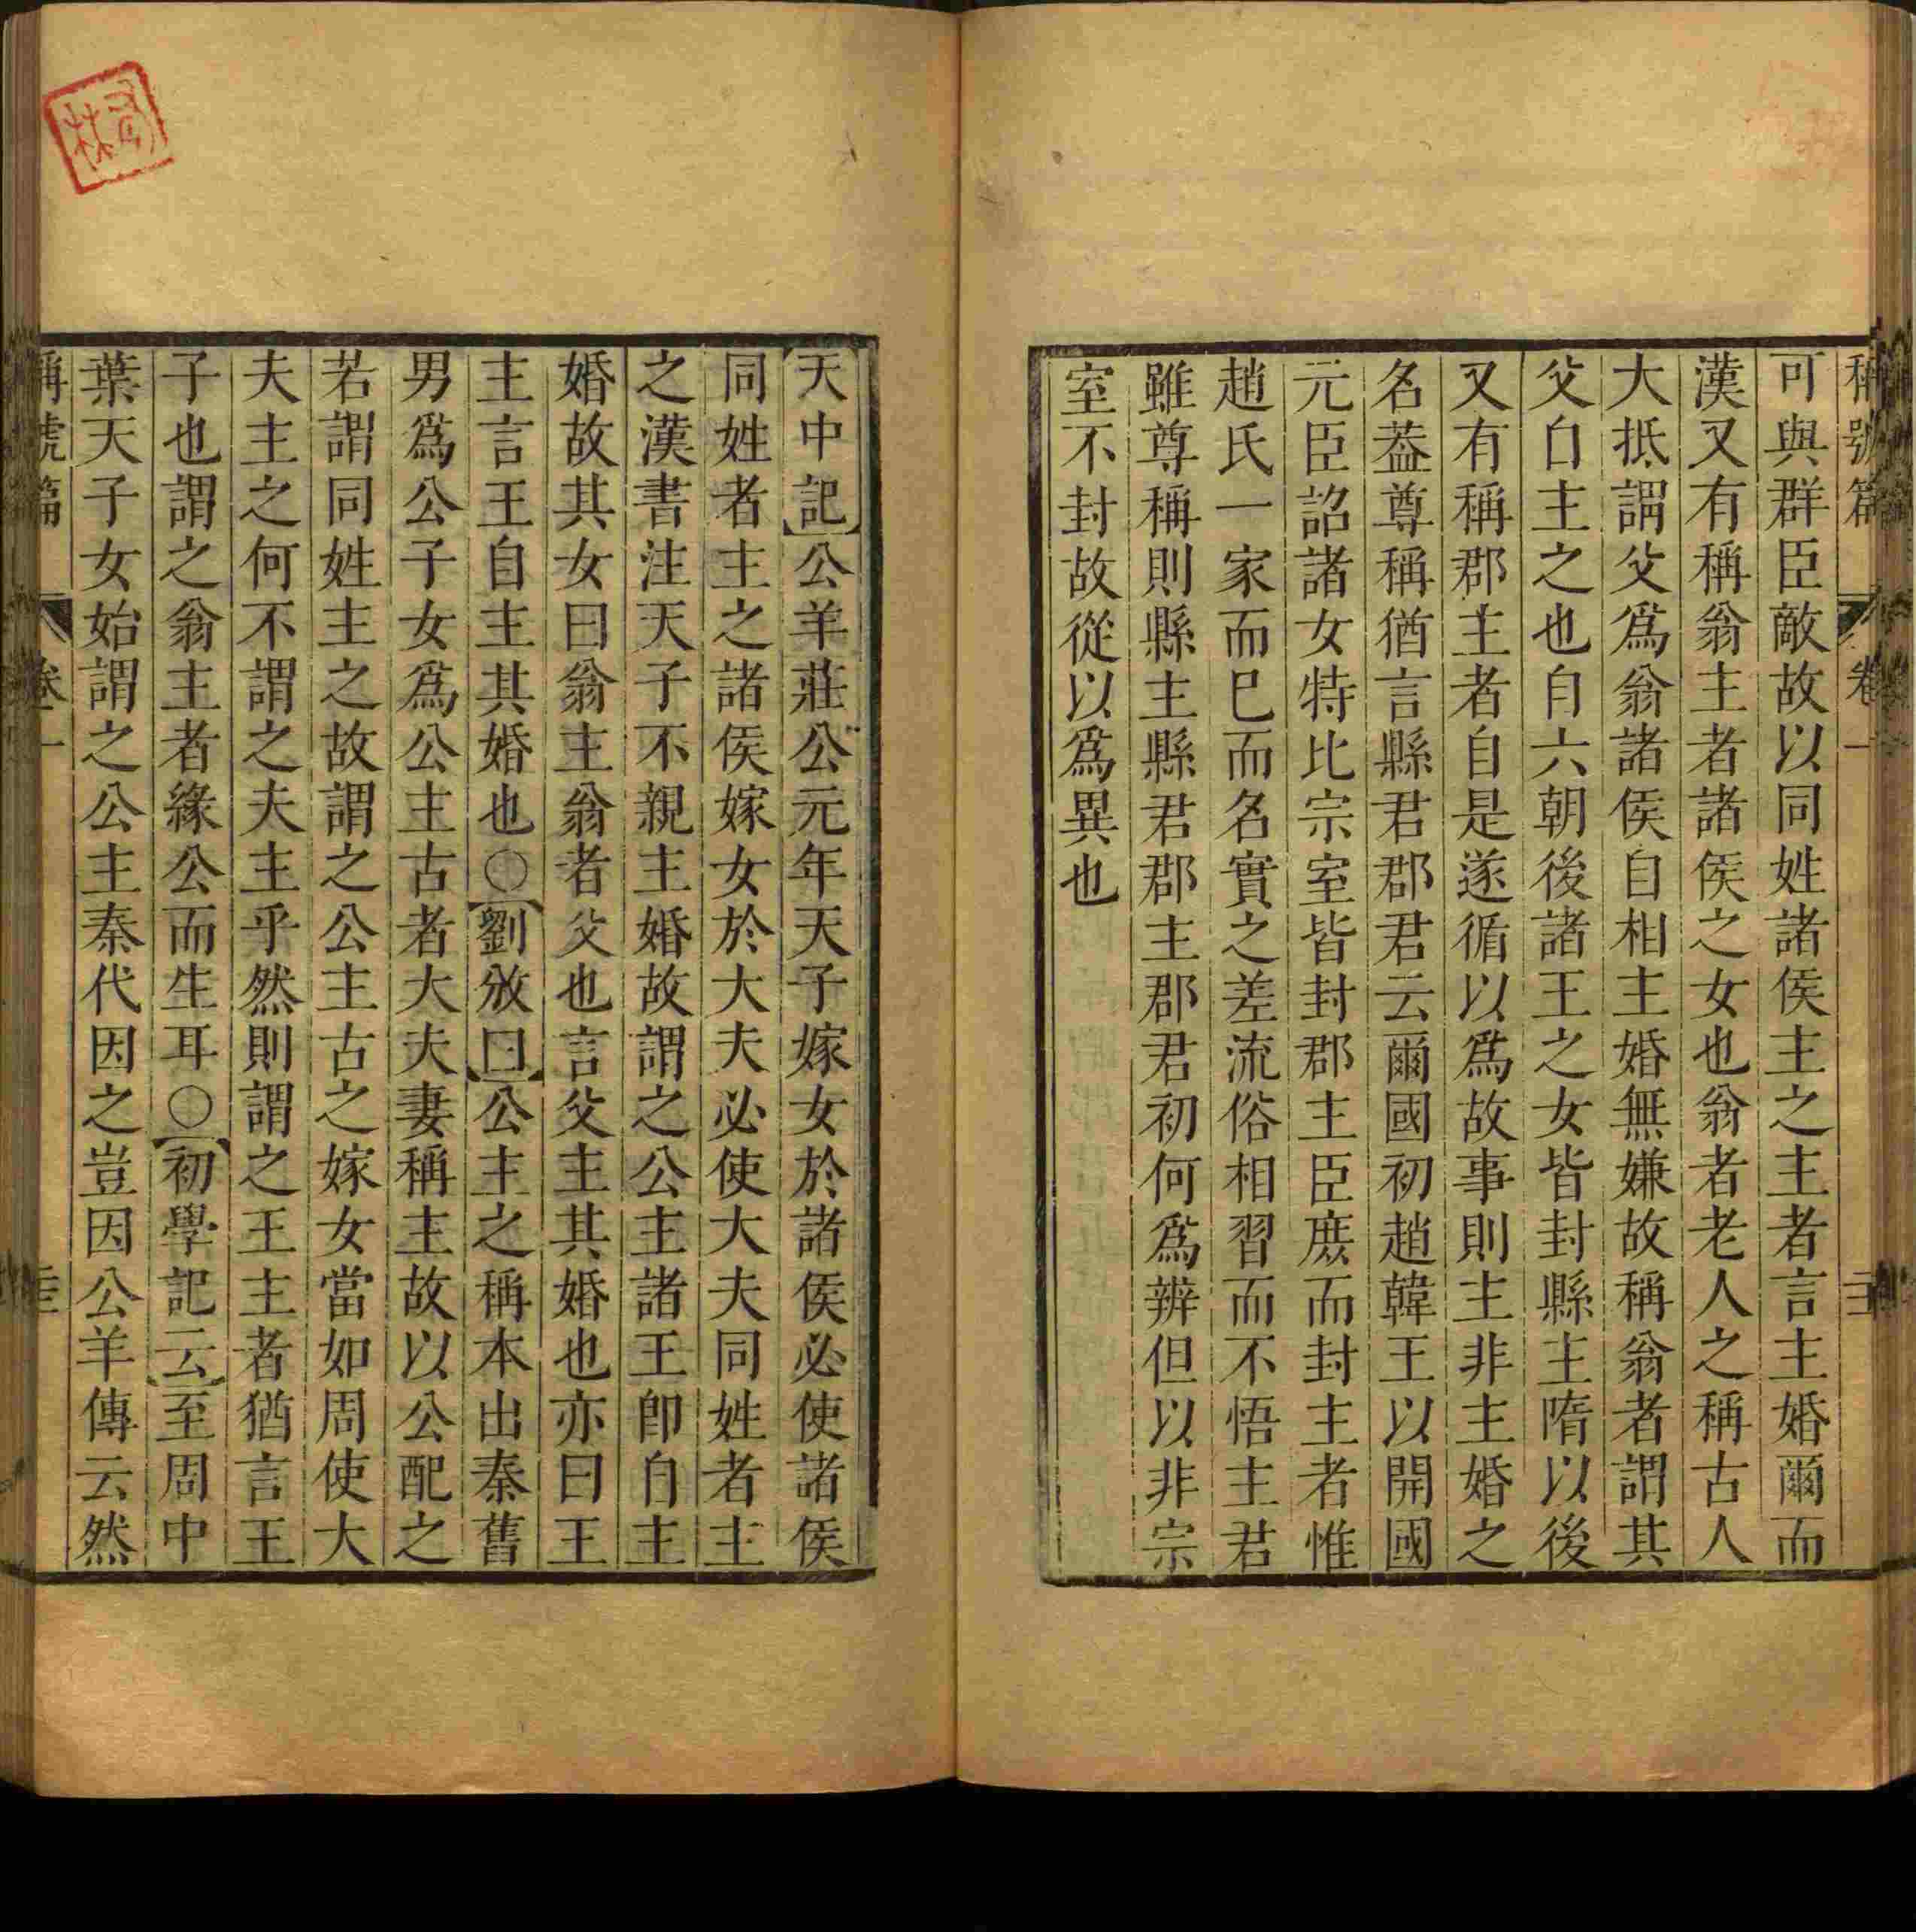 稱號篇 卷一
可與群臣敵故以同姓諸侯主之主者言主婚爾而
漢又有稱翁主者諸侯之女也翁者老人之稱古人
大抵謂父爲翁諸侯自相主婚無嫌故稱翁者謂其
父自主之也自六朝後諸王之女皆封縣主隋以後
又有稱郡主者自是遂循以爲故事則主非主婚之
名葢尊稱猶言縣君郡君云爾國初趙韓王以開國
元臣詔諸女特比宗室皆封郡主臣庶而封主者惟
趙氏一家而巳而名實之差流俗相習而不悟主君
雖尊稱則縣主縣君郡主郡君初何爲辨但以非宗
室不封故從以爲異也
天中記公羊莊公元年天子嫁女於諸侯必使諸侯
同姓者主之諸侯嫁女於大夫必使大夫同姓者主
之漢書注天子不親主婚故謂之公主諸王卽自主
婚故其女曰翁主翁者父也言父主其婚也亦曰王
主言王自主其婚也〇劉攽曰公主之稱本出秦舊
男爲公子女爲公主古者大夫妻稱主故以公配之
若謂同姓主之故謂之公主古之嫁女當如周使大
夫主之何不謂之夫主乎然則謂之王主者猶言王
子也謂之翁主者緣公而生耳〇初學記云至周中
葉天子女始謂之公主秦代因之豈因公羊傳云然
稱號篇 卷一